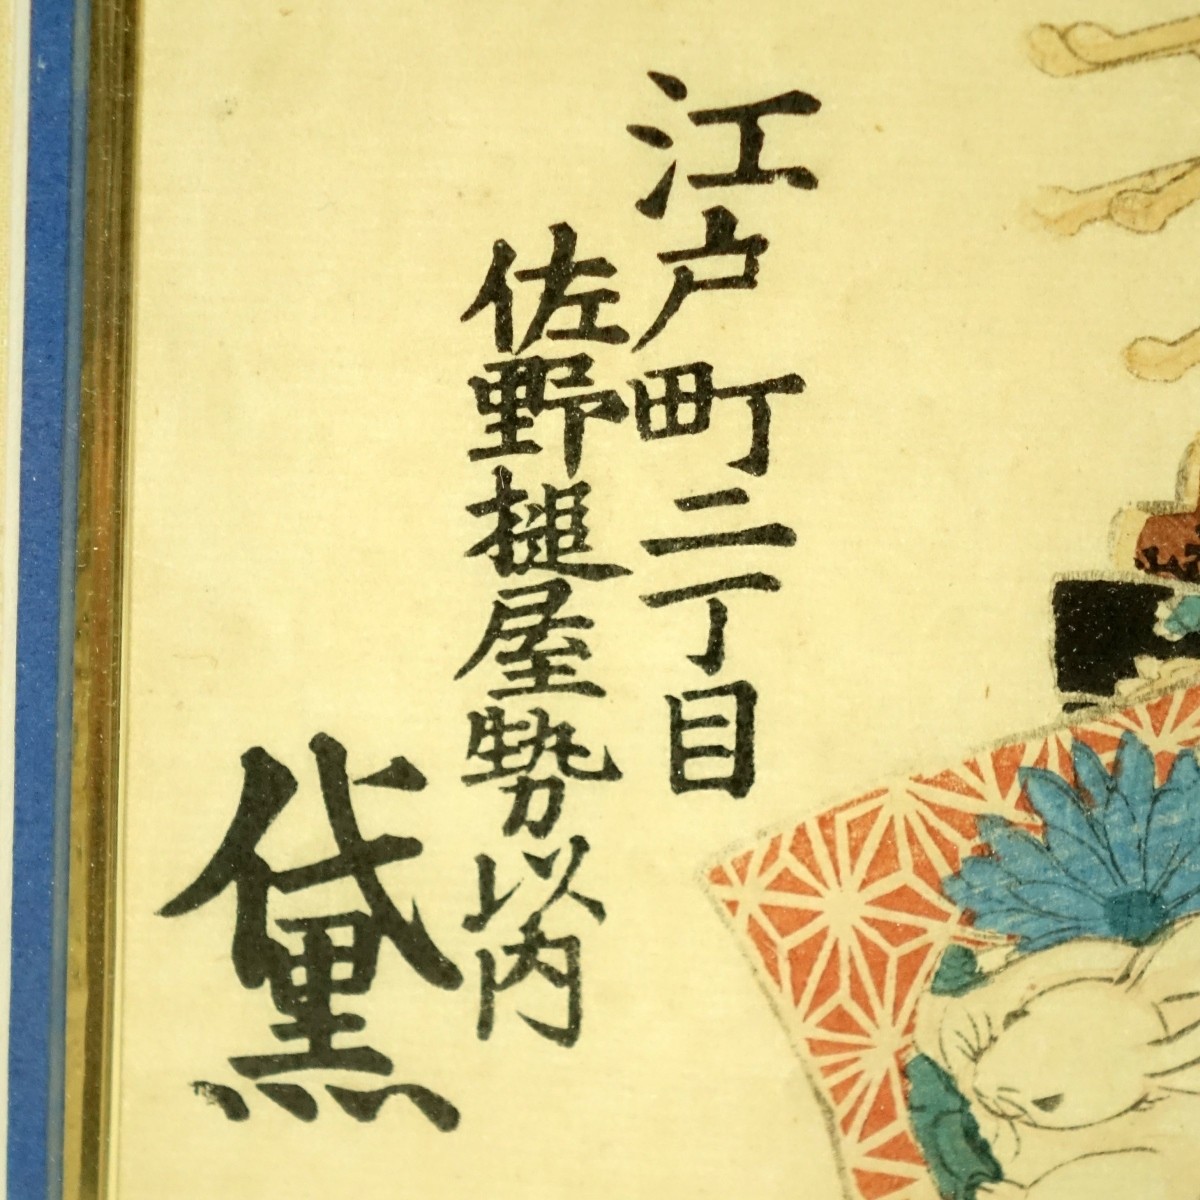 江戸町二丁目
佐野槌屋勢以内
黛